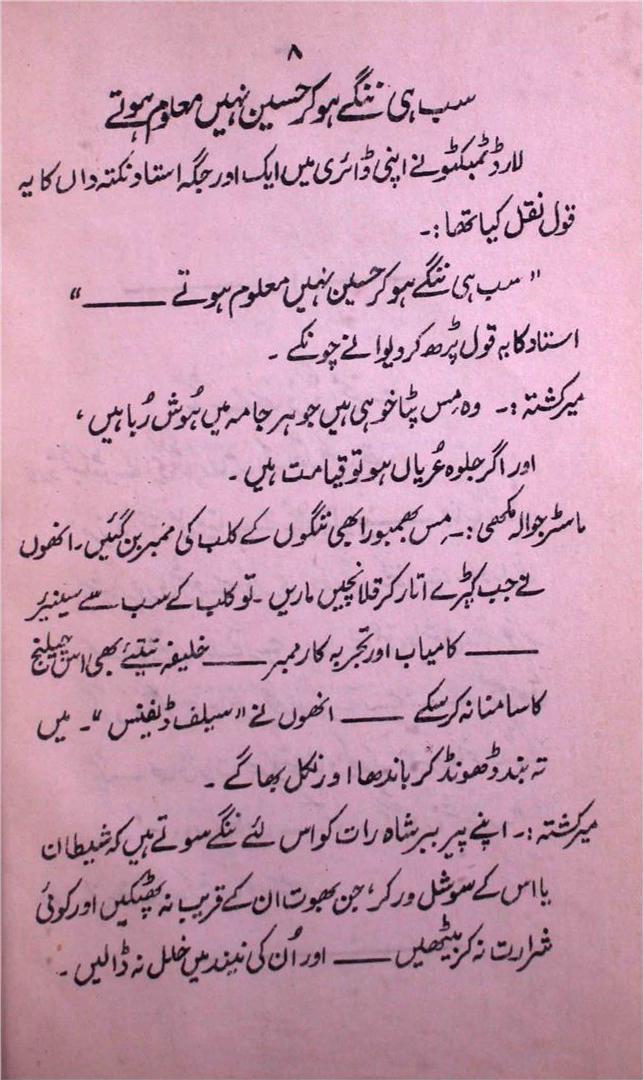 ۸
سب ہی ننگے ہو کر حسین نہیں معلوم ہوتے
لارڈ ٹمبکٹو نے اپنی ڈائری میں ایک اور جگہ استاد نکتہ داں کا یہ
قول نقل کیا تھا :۔
" سب ہی ننگے ہو کر حسین نہیں معلوم ہوتے ——— "
استاد کا یہ قول پڑھ کر دیوانے چونکے ۔
میر کشتہ :۔ وہ مِس پٹاخو ہی ہیں جو ہر جامہ میں ہُوش رُبا ہیں ،
اور اگر جلوہ عُریاں ہو تو قیامت ہیں ۔
ماسٹر جوالہ مکھی :۔ مِس بھمبورا بھی ننگوں کے کلب کی ممبر بن گئیں ۔ انھوں
نے جب کپڑے اتار کر قلانچیں ماریں ۔ تو کلب کے سب سے سینیئر
——— کامیاب اور تجربہ کار ممبر ——— خلیفہ تیتئے بھی اس چیلنج
کا سامنا نہ کر سکے ——— انھوں نے "سیلف ڈیفینس "۔ میں
تہ بند ڈھونڈ کر باندھا اور نکل بھاگے ۔
میر کشتہ :۔ اپنے پیر ببر شاہ رات کو اس لئے ننگے سوتے ہیں کہ شیطان
یا اس کے سوشل ورکر ، جن بھوت ان کے قریب نہ پھٹکیں اور کوئی
شرارت نہ کر بیٹھیں ——— اور اُن کی نیند میں خلل نہ ڈالیں ۔